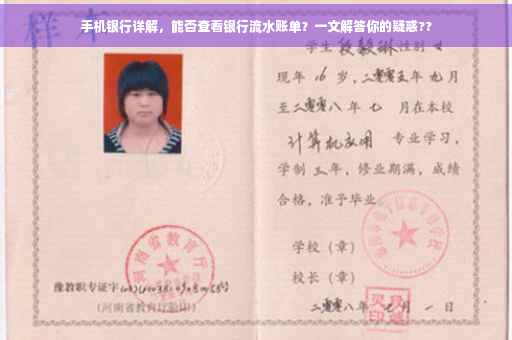 手机银行详解，能否查看银行流水账单？一文解答你的疑惑??
样本
学生段毅琳性别女
现年 16 岁，二零零五年九月
至二零零八年七 月在本校
计算机应用 专业学习，
学制三年，修业期满，成绩
合格，准予毕业
学校（章）
校长（章）
二零零八年 月一日
河南省教育厅
豫教职专证字
（河南省教育厅验印）